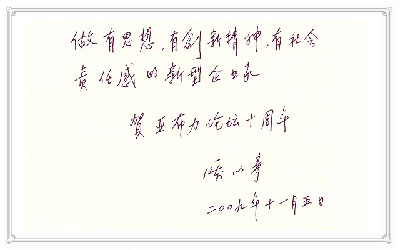 做有思想,有創新精神,有社会
责任感的新型企业家
贺亚布力论坛十周年
二〇〇九年十一月五日